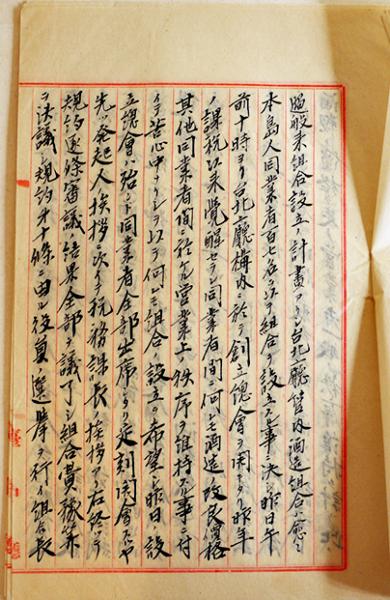 過般来組合設立ノ計畫アリシ台北廳管内酒造組合ハ愈々
本島人同業者百七名ヲ以テ組合ヲ設立スル事ニ決シ昨日午
前十時ヨリ台北廳構内ニ於テ創立總會ヲ開ケリ昨年
ノ課税以来覺醒セラ同業者間ニ何レモ酒造改良價格
其他同業者間ニ於ケル営業上ノ秩序ヲ維持スル事ニ付
イテ苦心中ナリシヲ以テ何レモ組合ノ設立ヲ希望シ昨日設
立總會ハ殆ント同業者全部出席セリ定刻開會スルヤ
先ツ発起人挨拶ニ次キテ税務課長ノ挨拶アリ右終ッテ
規約逐條審議ノ結果全部ヲ議了シ組合費豫算
ヲ決議シ規約才十條ニ由ル役員ノ選挙ヲ行イ組合長